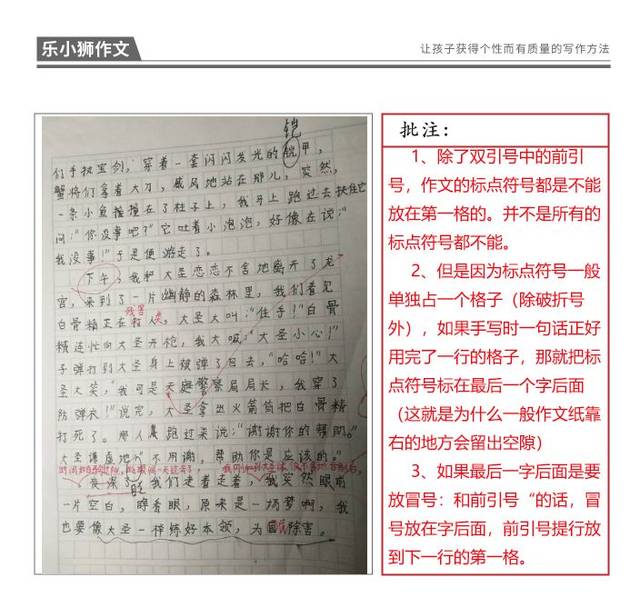 乐小狮作文
让孩子获得个性而有质量的写作方法
铠
们手执宝剑，穿着一套闪闪发光的铠甲，
蟹将们拿着大刀，威风地站在那儿，突然，
一条小鱼撞撞在了柱子上，我马上跑过去扶住它
问："你没事吧？"它吐着小泡泡，好像在说："
我没事！"于是便游走了。
下午，我和大圣恋恋不舍地离开了龙
宫，来到了一片幽静的森林里，我们看见
白骨精正在打人，大圣大叫："住手！"白骨
精连忙向大圣开枪，我大喊："大圣小心！"
子弹打到大圣身上被弹了回去，"哈哈！"大
圣大笑，"我可是天庭警察局局长，我穿了
防弹衣！"说完，大圣拿出火箭筒把白骨精
打死了。那人跑过来说："谢谢你的帮助。"
大圣谦虚地："不用谢，帮助你是应该的。"
夜深了，我们走着走着，我突然眼前
一片空白，睁看眼，原来是一场梦啊，我
也要像大圣一样练好本领，为国除害。
批注：
1、除了双引号中的前引
号，作文的标点符号都是不能
放在第一格的。并不是所有的
标点符号都不能。
2、但是因为标点符号一般
单独占一个格子（除破折号
外），如果手写时一句话正好
用完了一行的格子，那就把标
点符号标在最后一个字后面
（这就是为什么一般作文纸靠
右的地方会留出空隙）
3、如果最后一字后面是要
放冒号：和前引号“的话，冒
号放在字后面，前引号提行放
到下一行的第一格。